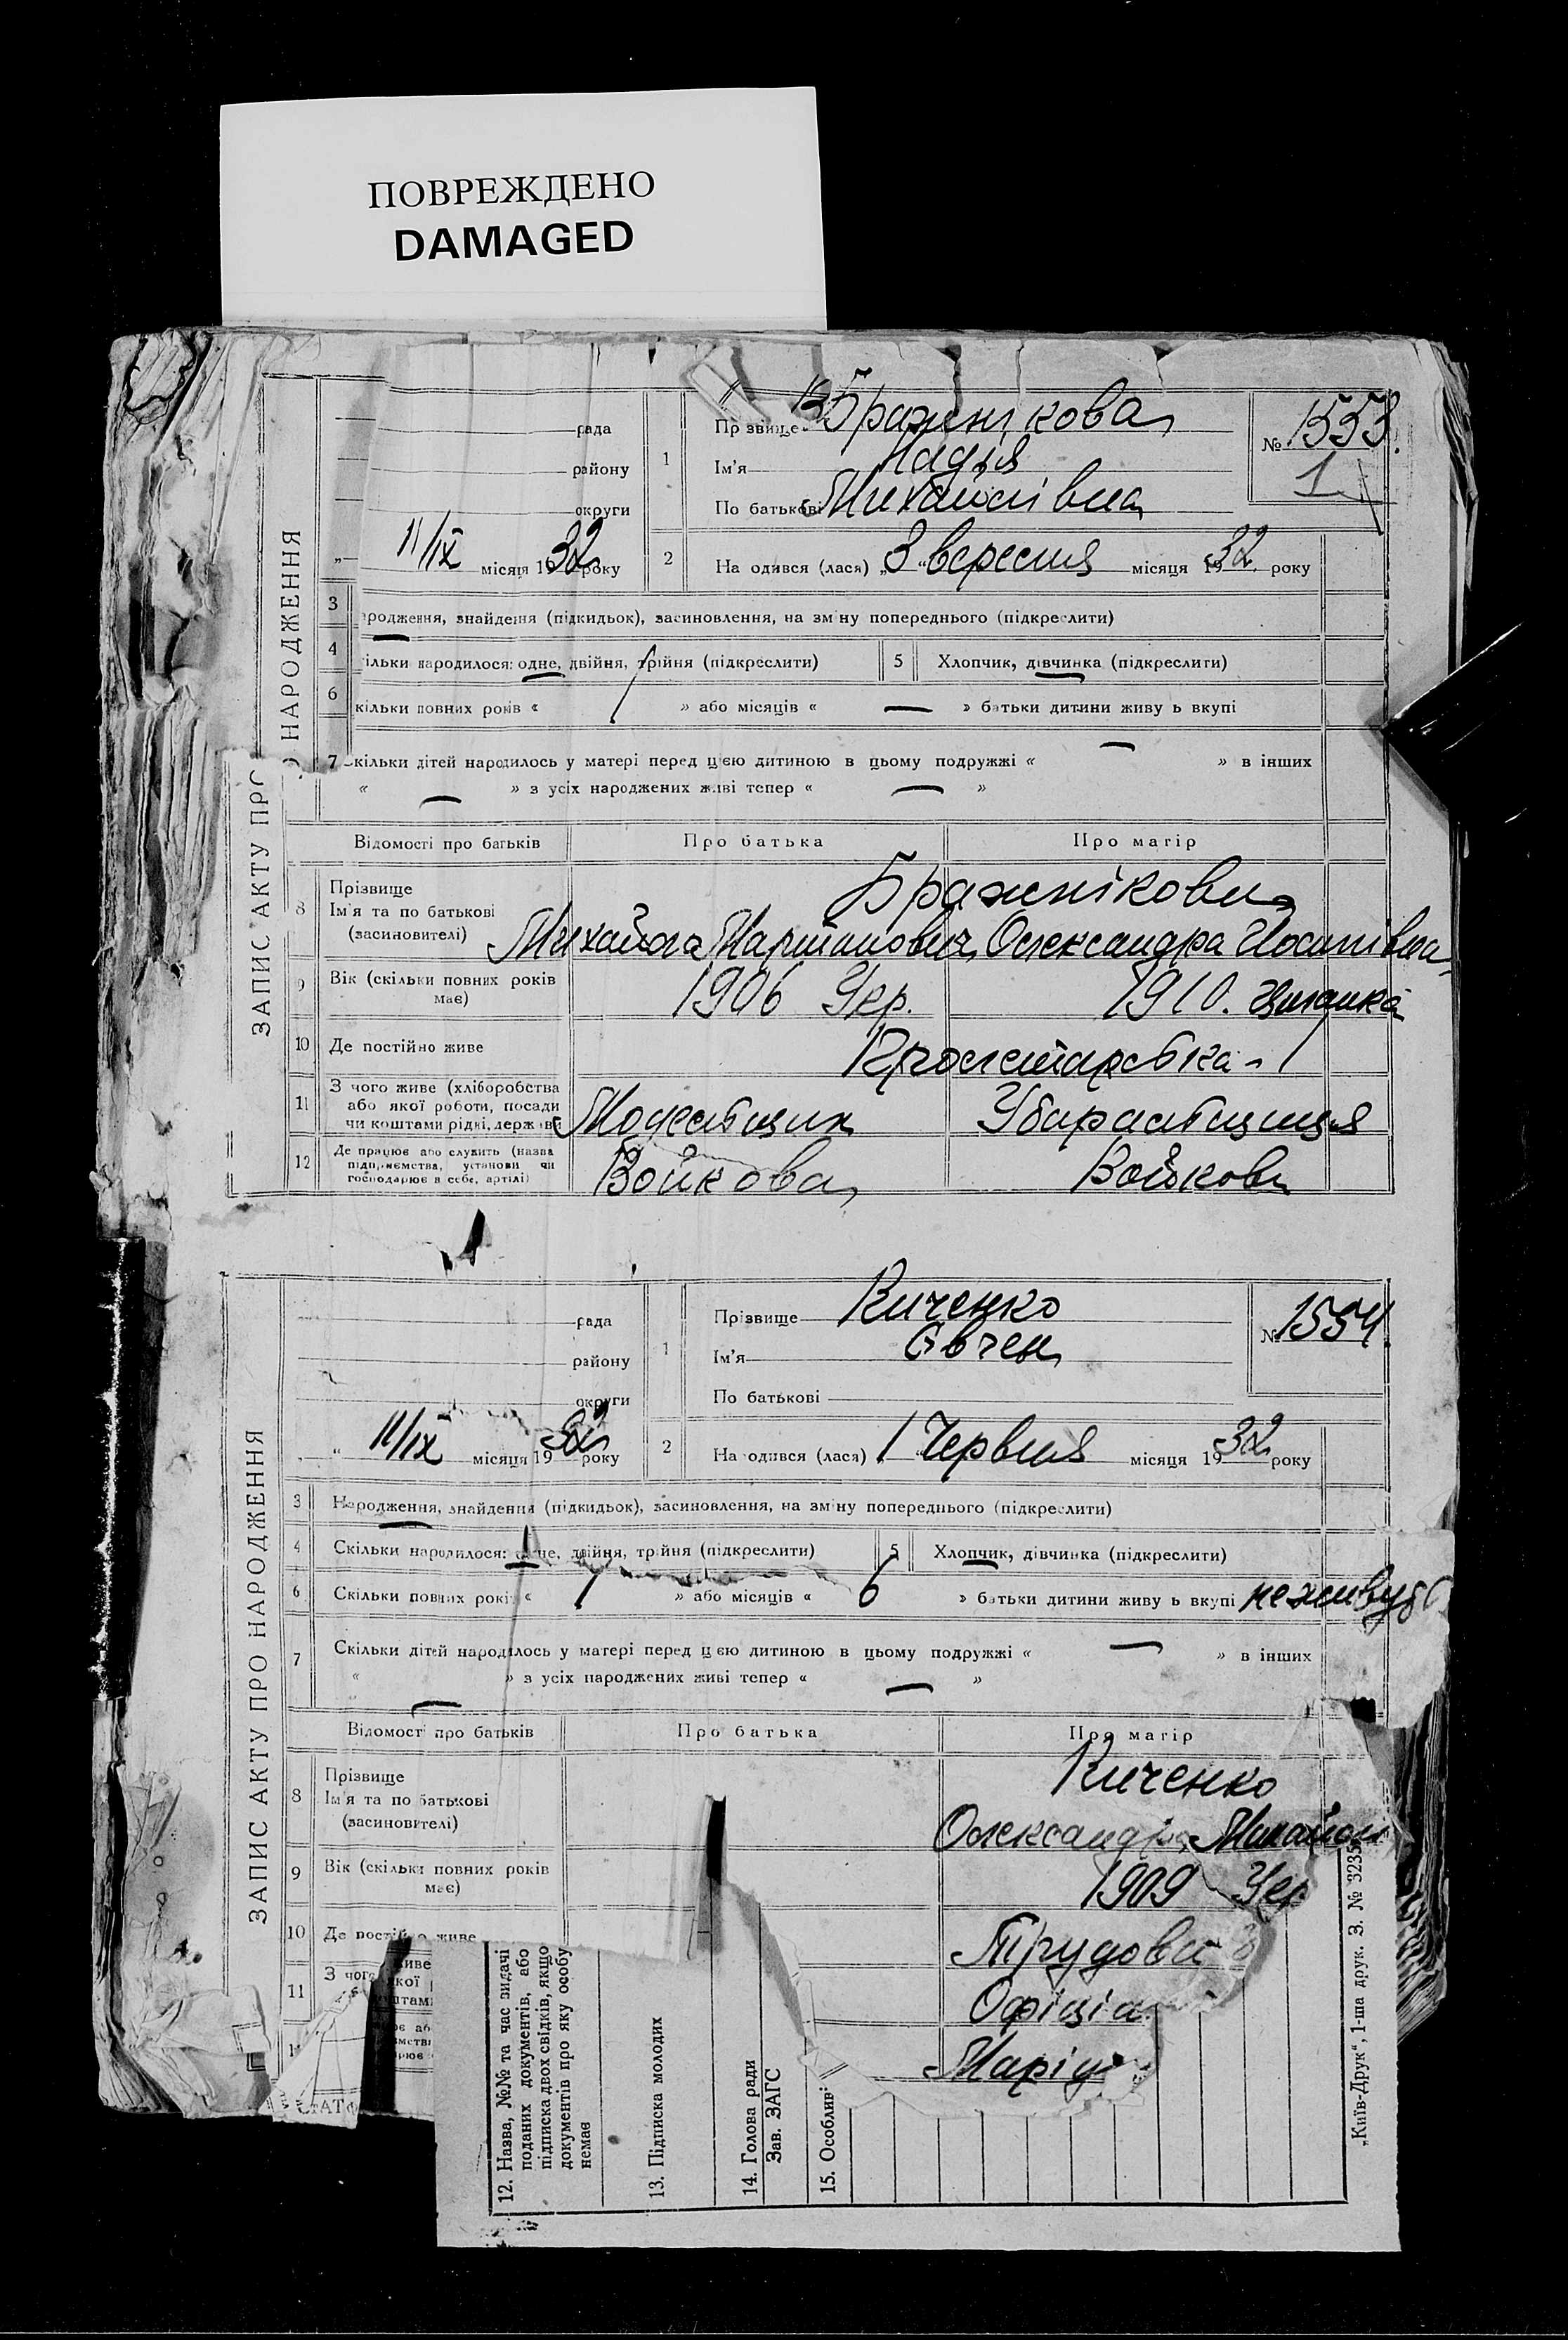 ПОВРЕЖДЕНО
DAMAGED
ЗАПИС АКТУ ПРО НАРОДЖЕННЯ
рада
району
округи
11/IX місяця 1932 року
1
Прізвище Бражнікова
Ім'я Надія
По батькові Михайлівна
№ 1553.
1
2
На одився (лася) „3“ вересня місяця 1932 року
3
родження, знайдення (підкидьок), засиновлення, на зміну попереднього (підкреслити)
4
ільки народилося: одне, двійня, трійня (підкреслити)
5 Хлопчик, дівчинка (підкреслити)
6
кільки повних років « » або місяців « — » батьки дитини живу ь вкупі
7 кільки дітей народилось у матері перед цією дитиною в цьому подружжі « — » в інших
« — » з усіх народжених живі тепер « — »
Відомості про батьків Про батька Про матір
8
Прізвище
Ім'я та по батькові
(засиновителі)
Бражнікови
Михайло Мартинович Олександра Йосипівна
9 Вік (скільки повних років має)
1906 Укр. 1910. Циганка
10 Де постійно живе
Пролетарська - 1
11 З чого живе (хліборобства
або якої роботи, посади
чи коштами рідні, держави
12 Де працює або служить (назва
підприємства, установи чи
господарює в себе, артілі)
Войкова Войкова
ЗАПИС АКТУ ПРО НАРОДЖЕННЯ
рада
району
округи
„ 11/IX місяця 1932 року
1
Прізвище Киченко
Ім'я Євген
По батькові
№ 1554.
2
На одився (лася) 1 червня місяця 1932 року
3 Народження, знайдення (підкидьок), засиновлення, на зміну попереднього (підкреслити)
4 Скільки народилося: одне, двійня, трійня (підкреслити)
5 Хлопчик, дівчинка (підкреслити)
6 Скільки повних років « » або місяців « 6 » батьки дитини живу ь вкупі не живуть
7 Скільки дітей народилось у матері перед цією дитиною в цьому подружжі « — » в інших
« — » з усіх народжених живі тепер « — »
Відомості про батьків Про батька Про матір
8
Прізвище
Ім'я та по батькові
(засиновителі)
Киченко
Олександра
9 Вік (скільки повних років має)
1909 Укр
10 Де постійно живе
Трудова
11 З чого
Офіціа
12. Назва, №№ та час видачі
поданих документів, або
підписка двох свідків, якщо
документів про яку особу
немає
13. Підписка молодих
14. Голова ради
Зав. ЗАГС
15. Особливі
„Київ-Друк“, 1-ша друк. З. № 3235